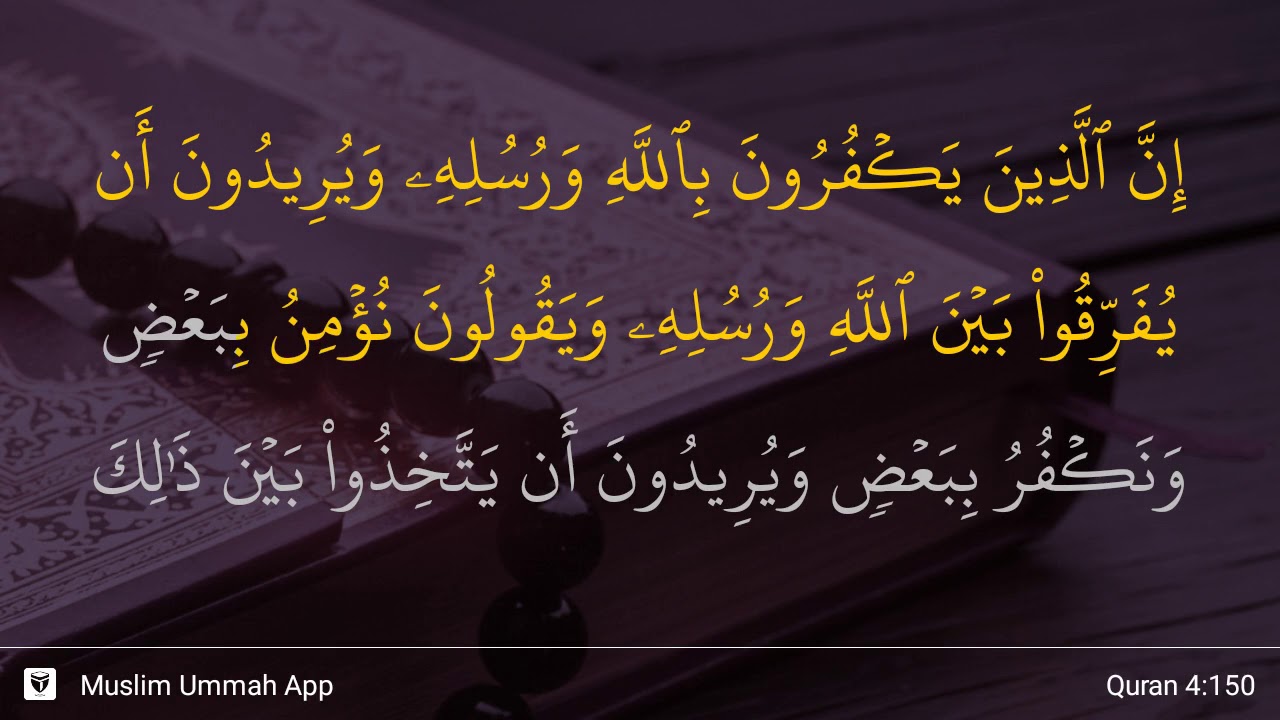 إِنَّ ٱلَّذِينَ يَكۡفُرُونَ بِٱللَّهِ وَرُسُلِهِۦ وَيُرِيدُونَ أَن
يُفَرِّقُواْ بَيۡنَ ٱللَّهِ وَرُسُلِهِۦ وَيَقُولُونَ نُؤۡمِنُ بِبَعۡضٖ
وَنَكۡفُرُ بِبَعۡضٖ وَيُرِيدُونَ أَن يَتَّخِذُواْ بَيۡنَ ذَٰلِكَ
Muslim Ummah App
Quran 4:150